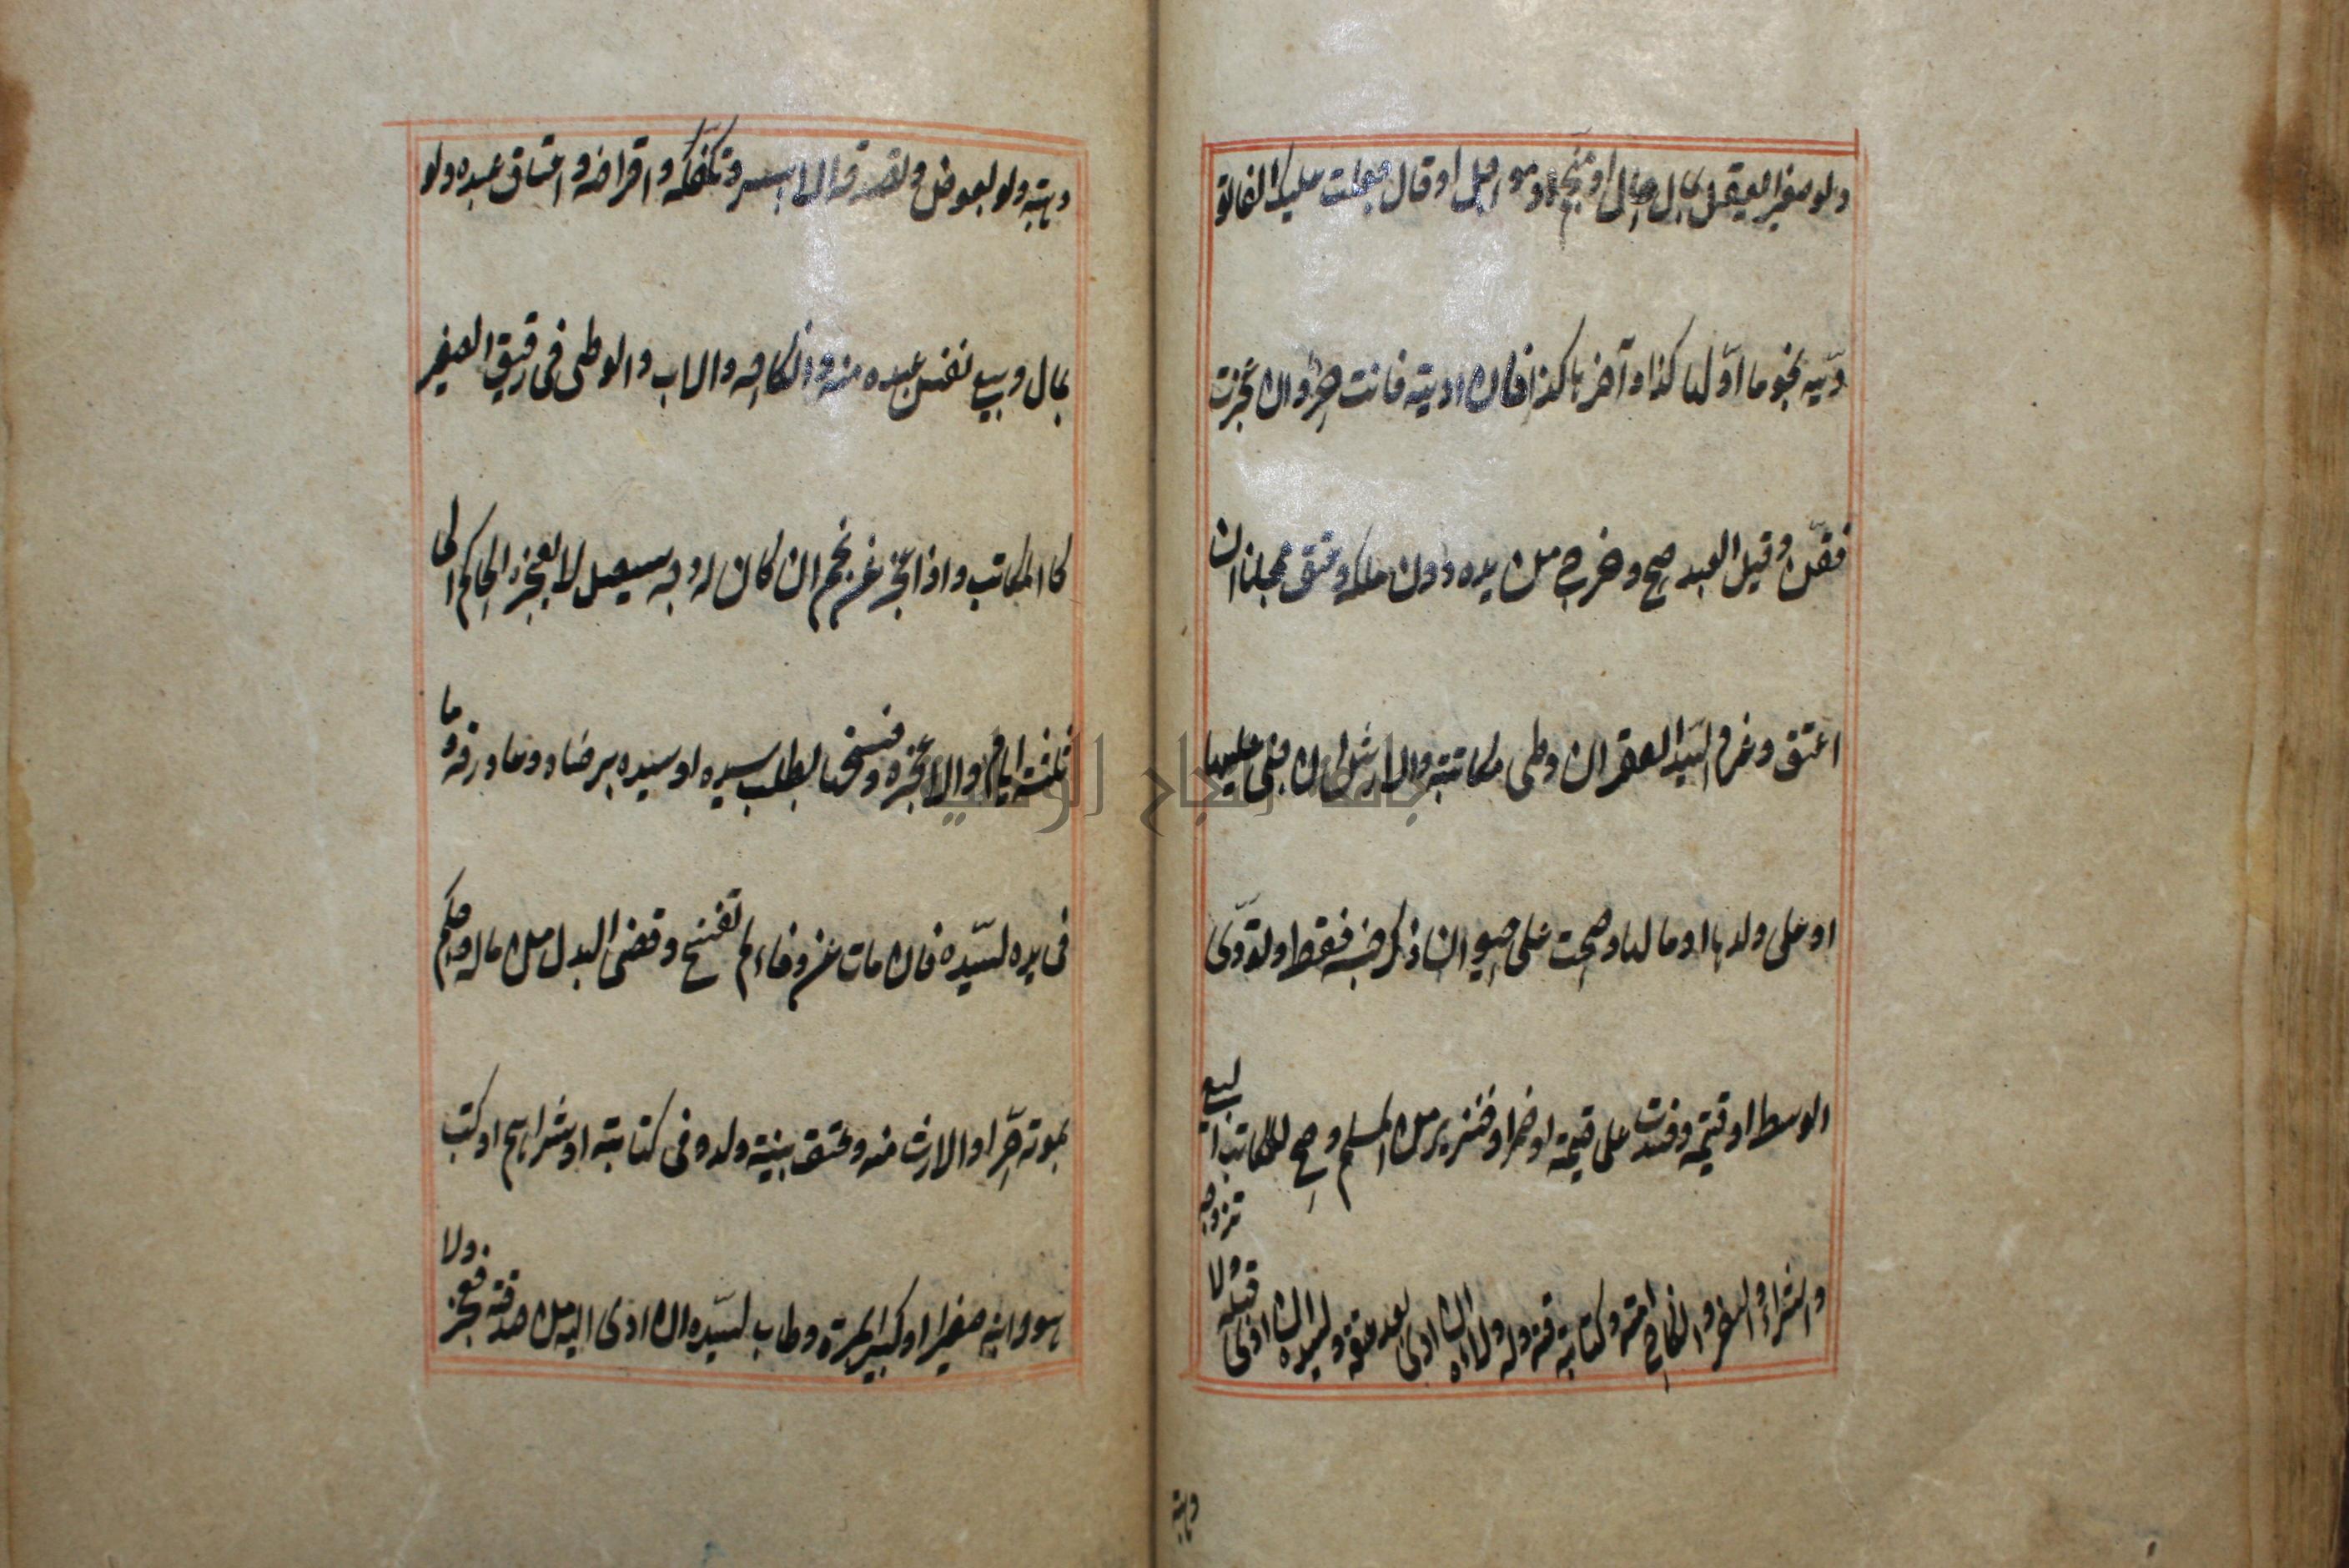 ولو صغيرا يعقل بمال حال او منجم او موجل او قال جعلت عليك الفا تو
ديه نجوما اولها كذا وآخرها كذا فان اديته فانت حر وان عجزت
فقن وقبل العبد صح وخرج من يده دون ملكه وعتق مجانا ان
اعتق وغرم السيد العقر ان وطى مكاتبته والارش ان جنى عليها
او على ولدها او مالها وصحت على حيوان ذكر جنسه فقط ولتودى
الوسط او قيمته وفسدت على قيمته او خمر او خنزير من المسلم وصح للمكاتب البيع
والشراء والسفر وانكاح امته وكتابة قنه وله ولاؤه ان ادى بعد عتقه ولسيده ان ادى قبله ولا تزوجه
وهبته
وهبته ولو بعوض وتصدقه الا بيسير وتكفله واقراضه واعتاق عبده ولو
بمال وبيع نفس عبده منه وانكاحه والاب والوطى فى رقيق الصغير
كالمكاتب واذا عجز عن نجم ان كان له وجه سيصل لا يعجزه الحاكم الى
ثلثة ايام والا عجزه وفسخها بطلب سيده او سيده برضاه وعاد رقه وما
فى يده لسيده فان مات عن وفاء لم تفسخ وقضى البدل من ماله وحكم
بموته حرا والارث منه وعتق بنيه ولدوه فى كتابته او شراهم او كتب
هو وابنه صغيرا او كبيرا بمرة وطاب لسيده ان ادى اليه من صدقة فعجز ولا
جامعة النجاح الوطنية